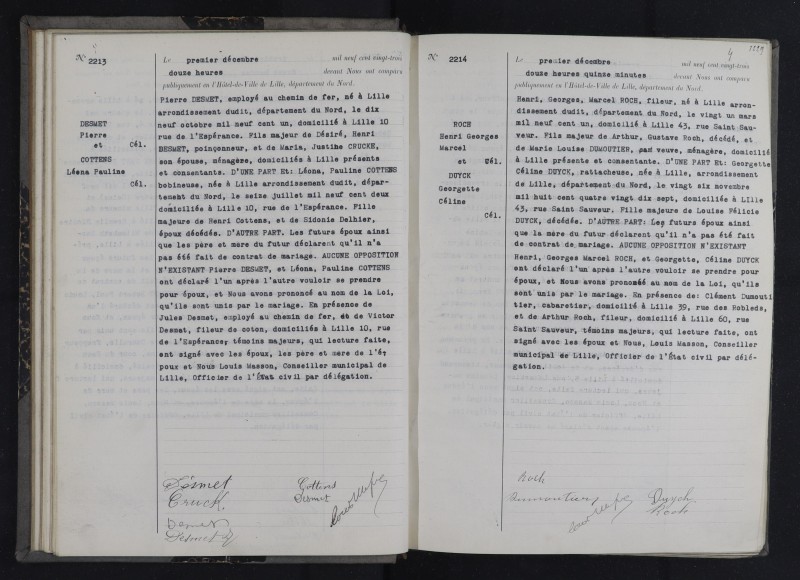 N° 2213
Le premier décembre mil neuf cent vingt-trois
douze heures devant Nous ont comparu
publiquement en l'Hôtel-de-Ville de Lille, département du Nord.
DESMET
Pierre
et Cél.
COTTENS
Léona Pauline
Cél.
Pierre DESMET, employé au chemin de fer, né à Lille
arrondissement dudit, département du Nord, le dix
neuf octobre mil neuf cent un, domicilié à Lille 10
rue de l'Espérance. Fils majeur de Désiré, Henri
DESMET, poinçonneur, et de Maria, Justine CRUCKE,
son épouse, ménagère, domiciliés à Lille présents
et consentants. D'UNE PART Et: Léona, Pauline COTTENS
bobineuse, née à Lille arrondissement dudit, dépar-
tement du Nord, le seize juillet mil neuf cent deux
domiciliés à Lille 10, rue de l'Espérance. Fille
majeure de Henri Cottens, et de Sidonie Delhier,
époux décédés. D'AUTRE PART. Les futurs époux ainsi
que les père et mère du futur déclarent qu'il n'a
pas été fait de contrat de mariage. AUCUNE OPPOSITION
N'EXISTANT Pierre DESMET, et Léona, Pauline COTTENS
ont déclaré l'un après l'autre vouloir se prendre
pour époux, et Nous avons prononcé au nom de la Loi,
qu'ils sont unis par le mariage. En présence de
Jules Desmet, employé au chemin de fer, et de Victor
Desmet, fileur de coton, domiciliés à Lille 10, rue
de l'Espérance; témoins majeurs, qui lecture faite,
ont signé avec les époux, les père et mère de l'é
poux et Nous Louis Masson, Conseiller municipal de
Lille, Officier de l'État civil par délégation.
Desmet Cottens
Cruck Desmet
Desmet
Desmet
N° 2214
Le premier décembre mil neuf cent vingt-trois
douze heures quinze minutes devant Nous ont comparu
publiquement en l'Hôtel-de-Ville de Lille, département du Nord.
ROCH
Henri Georges
Marcel
et Cél.
DUYCK
Georgette
Céline
Cél.
Henri, Georges, Marcel ROCH, fileur, né à Lille arron-
dissement dudit, département du Nord, le vingt un mars
mil neuf cent un, domicilié à Lille 43, rue Saint Sau-
veur. Fils majeur de Arthur, Gustave Roch, décédé, et
de Marie Louise DUMOUTIER, veuve, ménagère, domicilié
à Lille présente et consentante. D'UNE PART Et: Georgette
Céline DUYCK, rattacheuse, née à Lille, arrondissement
de Lille, département du Nord, le vingt six novembre
mil huit cent quatre vingt dix sept, domiciliés à Lille
43, rue Saint Sauveur. Fille majeure de Louise Félicie
DUYCK, décédée. D'AUTRE PART. Les futurs époux ainsi
que la mère du futur déclarent qu'il n'a pas été fait
de contrat de mariage. AUCUNE OPPOSITION N'EXISTANT
Henri, Georges Marcel ROCH, et Georgette, Céline DUYCK
ont déclaré l'un après l'autre vouloir se prendre pour
époux, et Nous avons prononcé au nom de la Loi, qu'ils
sont unis par le mariage. En présence de: Clément Dumouti
tier, cabaretier, domicilié à Lille 39, rue des Robleds,
et de Arthur Roch, fileur, domicilié à Lille 60, rue
Saint Sauveur, témoins majeurs, qui lecture faite, ont
signé avec les époux et Nous, Louis Masson, Conseiller
municipal de Lille, Officier de l'État civil par délé-
gation.
Roch
Dumoutier Duyck
Roch